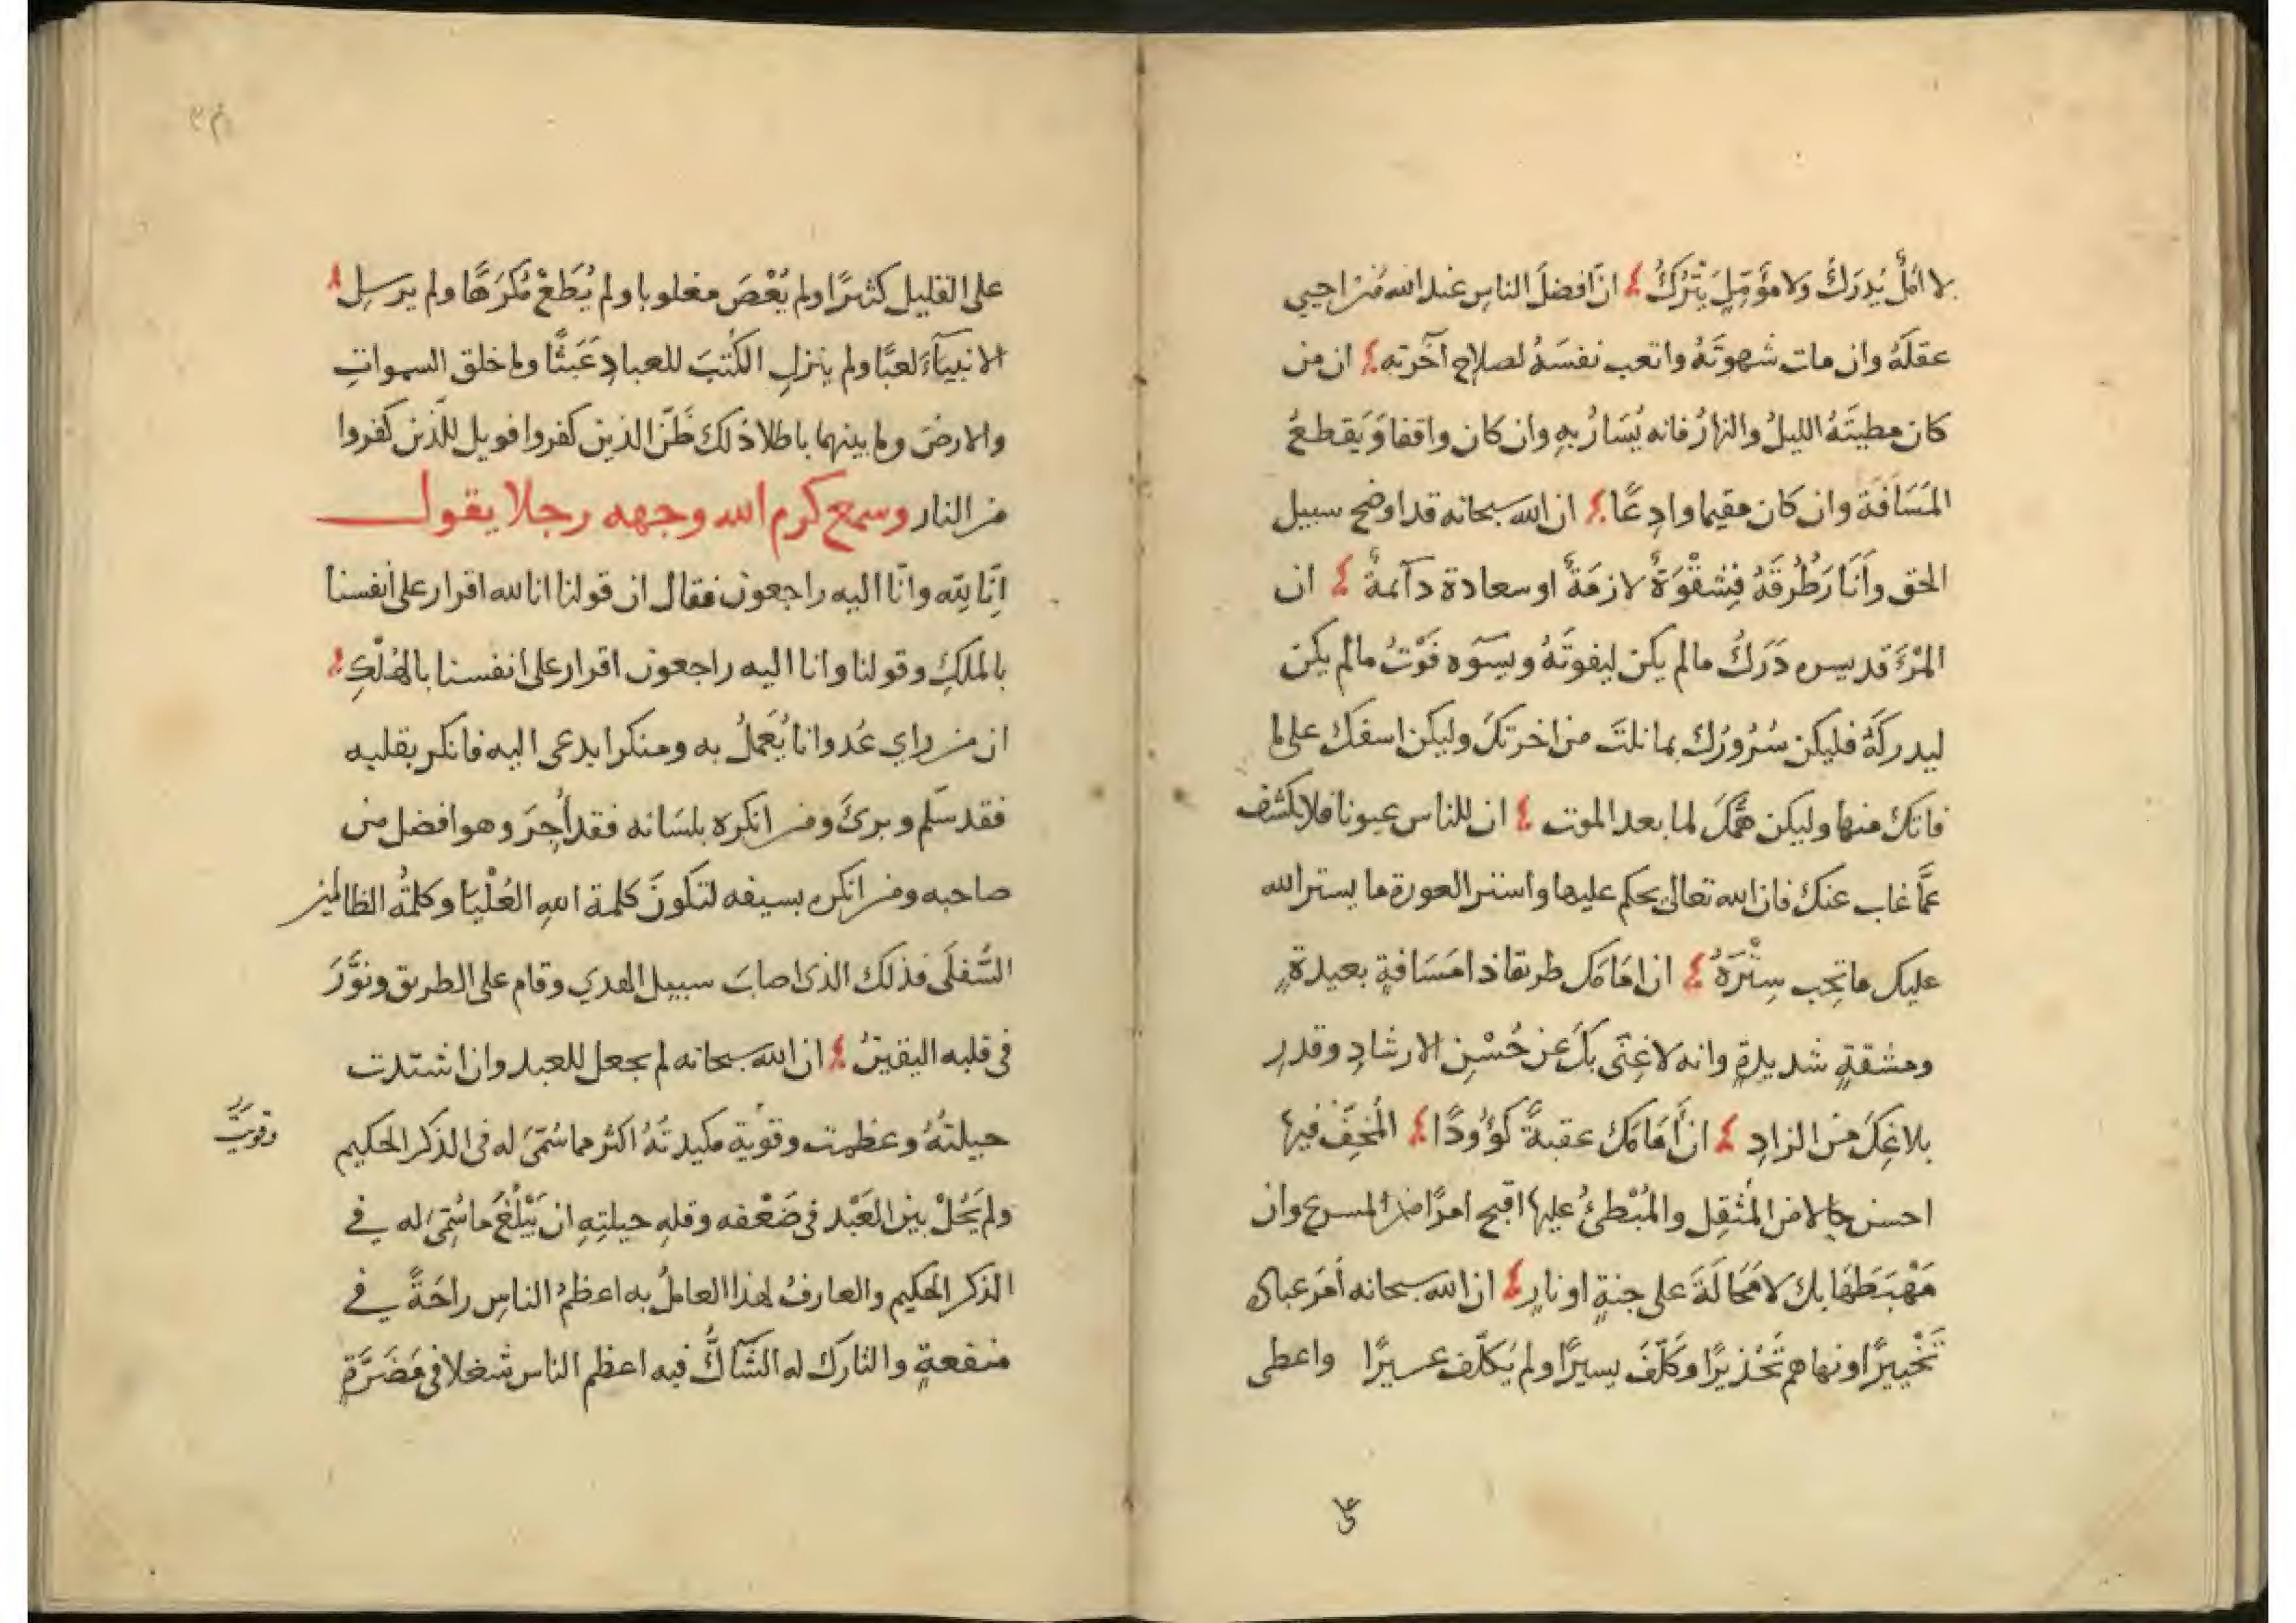 لا امَلٌ يُدرَكُ ولا مؤمِّلٌ يَتْرَكُ انّ افضلَ الناسِ عند الله مَن احيى
عقلَهُ وان مات شهوتَهُ واتعب نفسَهُ لصلاحِ آخرته ان من
كان مطيتَهُ الليلُ والنهارُ فانه يُسَارُ بِهِ وان كان واقفا وَيَقطعُ
المَسَافَةَ وان كان مقيما وادِعًا ان الله سبحانه قد اوضح سبيل
الحق وأَنَارَ طُرقَهُ فِشقْوَةٌ لازمَةٌ او سعادة دآئمةٌ ان
المرْءَ قد يسره دَرَكُ ما لم يكن ليفوتَهُ ويسوَه فَوْتُ ما لم يكن
ليدركَهُ فليكن سُرُورُكَ بما نلتَ من اخرتكَ وليكن اسفكَ على ما
فاتكَ منها وليكن همُّكَ لما بعد الموت ان للناس عيوبا فلا تكشف
عمَّا غاب عنكَ فان الله تعالى يحكم عليها واستر العورة ما يستر الله
عليك ما تحِب سِتْرَهُ ان امَامَك طريقا ذا مَسَافةٍ بعيدةٍ
ومشقةٍ شديدةٍ وانه لا غِنَى بكَ عن حُسْنِ الارشادِ وقدرِ
بلاغِكَ من الزادِ ان أَمَامَكَ عقبةً كَؤُودًا المُخِفُّ فيها
احسن حالا من المُثقِل والمُبْطئُ عليها اقبح امرًا من المسرع وان
مَهْبَطَهَا بك لا مَحَالَةَ على جنةٍ او نارٍ ان الله سبحانه أمَرَ عباده
تَخْييرًا ونهاهم تَحْذيرًا وكَلَّفَ يسيرًا ولم يُكلِّف عسيرًا واعطى
على
على القليل كثيرًا ولم يُعْصَ مغلوبا ولم يُطَعْ مُكرَهًا ولم يرسِلِ
الانبيآءَ لعبًا ولم ينزلِ الكُتبَ للعبادِ عَبَثًا وما خلق السموات
والارضَ وما بينهما باطلا ذلك ظَنُّ الذين كفروا فويل للّذين كفروا
من النار وسمع كرم الله وجهه رجلا يقول
انّا للّه وانّا اليه راجعون فقال ان قولنا انا لله اقرار على أنفسنا
بالملكِ وقولنا وانا اليه راجعون اقرار على انفسنا بالهُلْكِ
ان من راي عُدوانا يُعمَلُ به ومنكرا يدعى اليه فانكر بقلبه
فقد سلم وبرئَ ومن انكره بلسَانه فقد أُجِرَ وهو افضل من
صاحبه ومن انكره بسيفه لتكونَ كلمة اللهِ العُلْيَا وكلمةُ الظالمين
السُّفلَى فذلك الذى اصابَ سبيل الهدي وقام على الطريق ونوَّرَ
فى قلبه اليقينُ ان الله سبحانه لم يجعل للعبد وان اشتدت
حيلتهُ وعظمت وقوية مكيدتَهُ اكثر مما سُمّىَ له فى الذكر الحكيم
وقويَتْ
ولم يَحُلْ بين العَبْد فى ضَعْفه وقلهِ حيلتِهِ ان يَبْلُغَ ما سُمِّىَ له في
الذكر الحكيم والعارفُ لهذا العاملُ به اعظمُ الناسِ راحَةً في
منفعةٍ والتارك له الشّاكُّ فيه اعظم الناس شغلا فى مَضَرَّةٍ